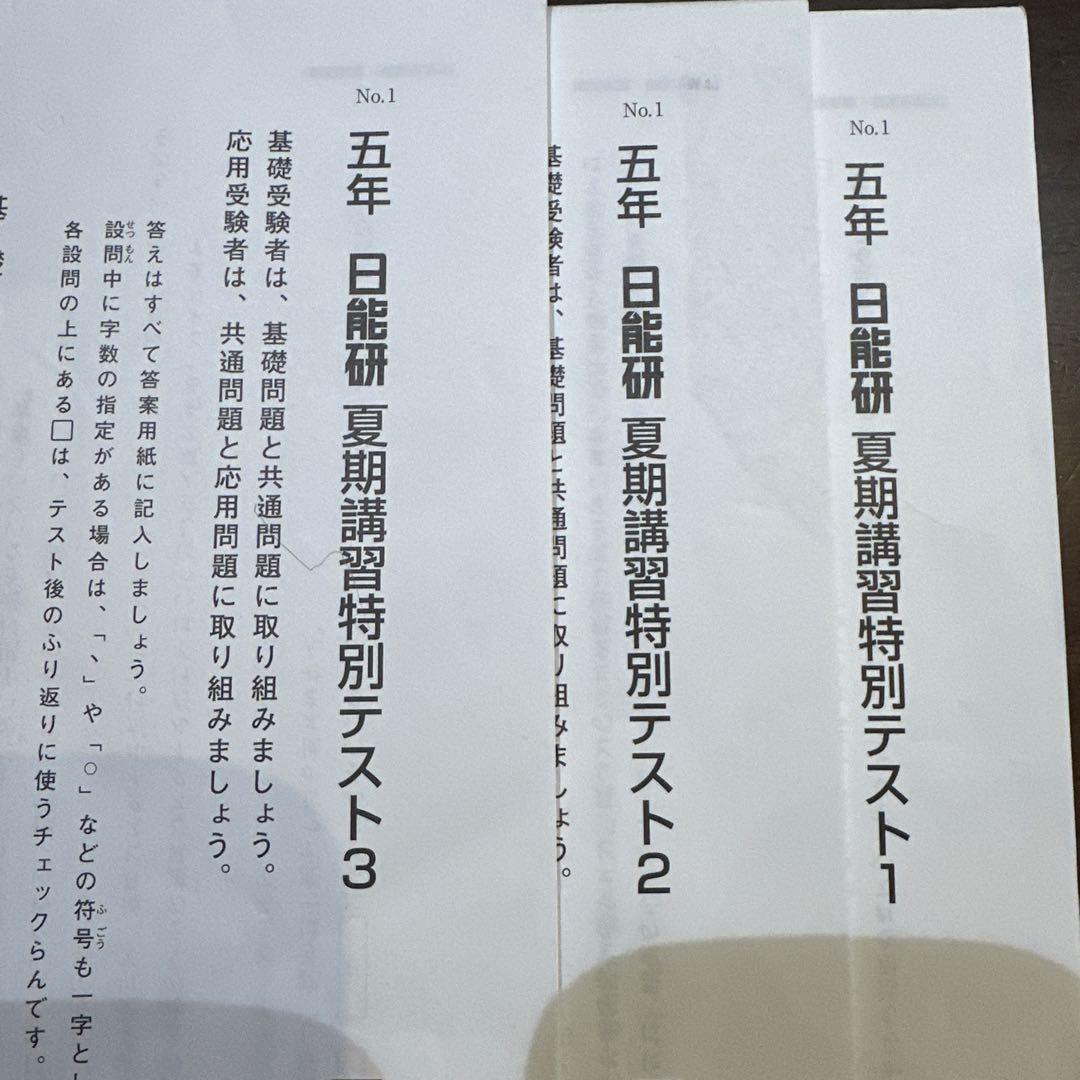 No.1
五年 日能研 夏期講習特別テスト1
No.1
五年 日能研 夏期講習特別テスト2
基礎受験者は、基礎問題と共通問題に取り組みましょう。
No.1
五年 日能研 夏期講習特別テスト3
基礎受験者は、基礎問題と共通問題に取り組みましょう。
応用受験者は、共通問題と応用問題に取り組みましょう。
答えはすべて答案用紙に記入しましょう。
設問中に字数の指定がある場合は、「、」や「。」などの符号も一字とし
せつもん
ふごう
各設問の上にある□は、テスト後のふり返りに使うチェックらんです。